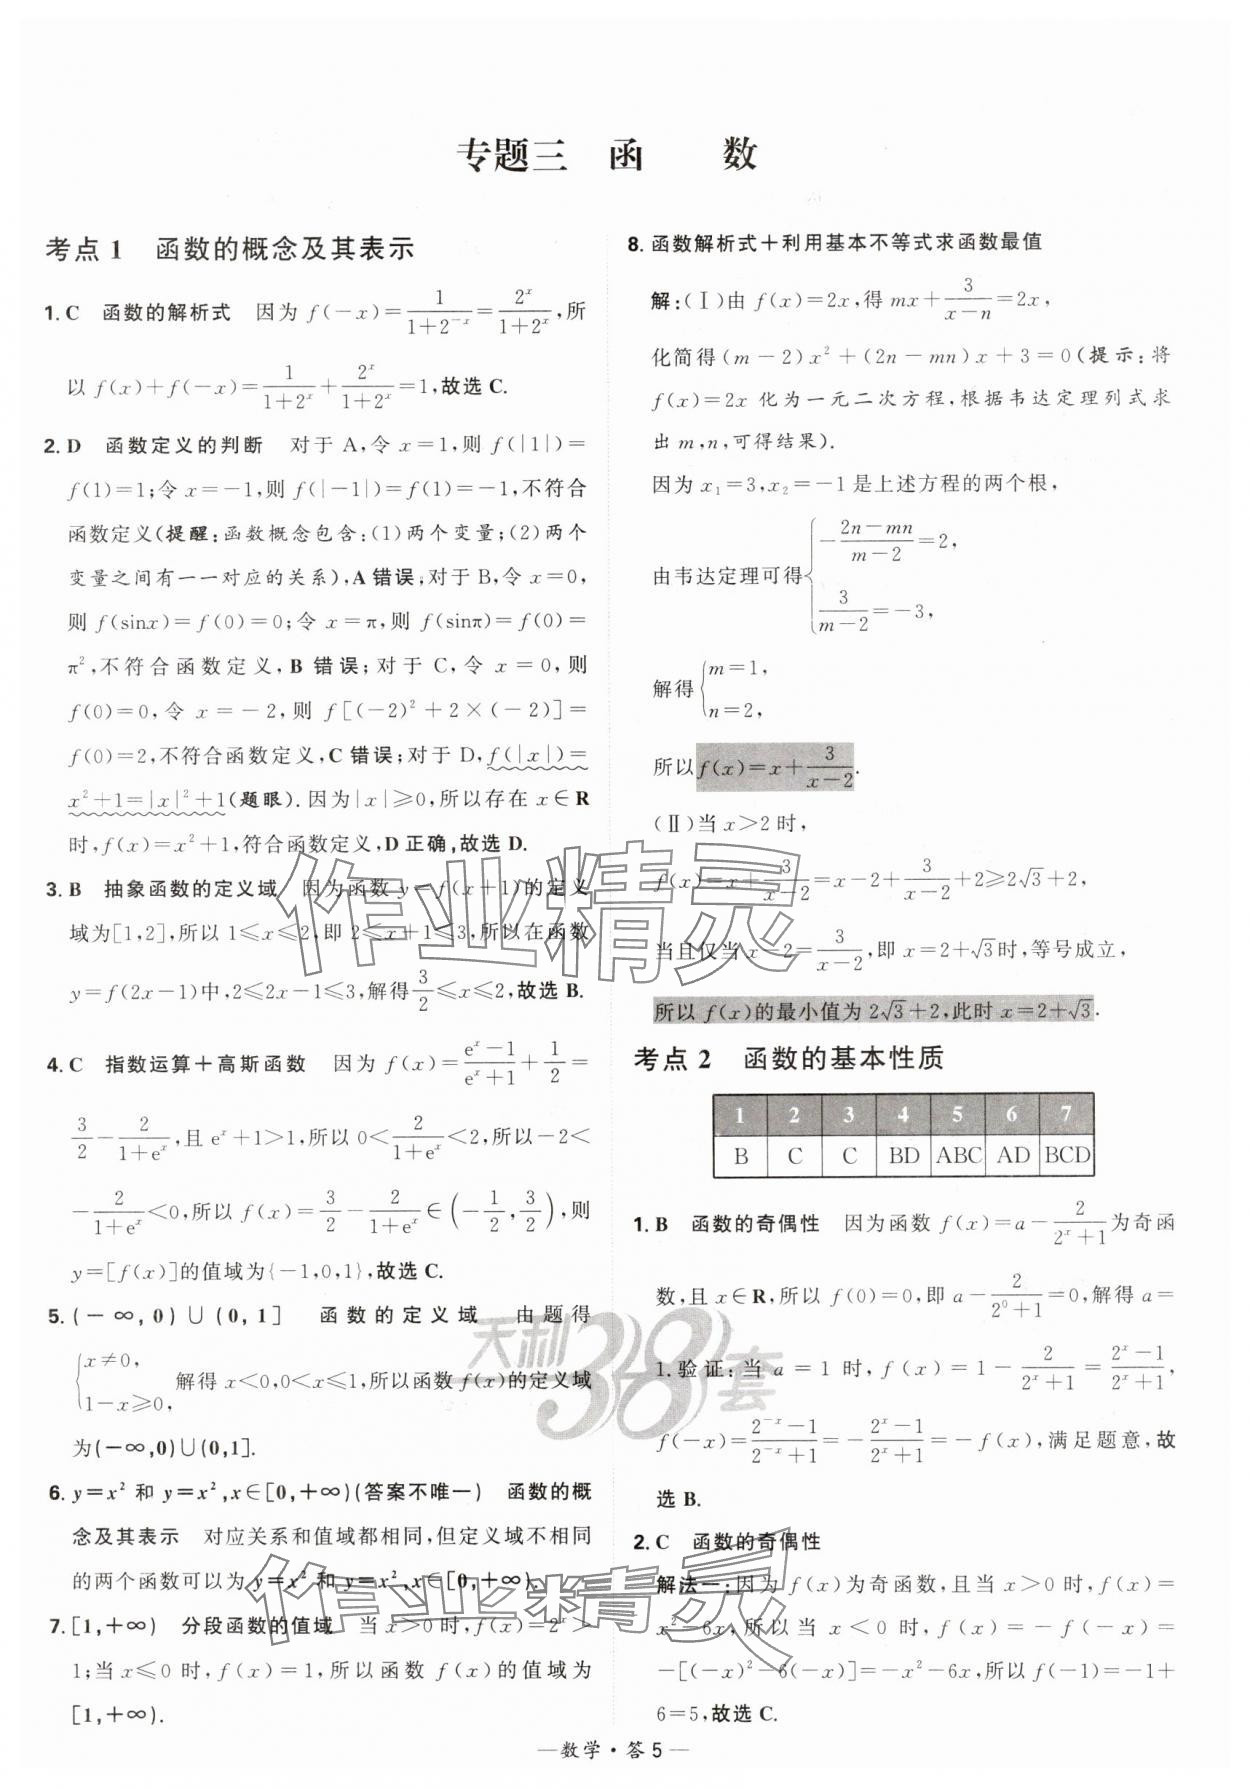 专题三 函 数
考点 1 函数的概念及其表示
1. C 函数的解析式 因为 f(−x)=1/(1+2^{−x})=2^x/(1+2^x),所
以 f(x)+f(−x)=1/(1+2^x)+2^x/(1+2^x)=1,故选 C.
2. D 函数定义的判断 对于 A,令 x=1,则 f(|1|)=
f(1)=1;令 x=−1,则 f(|−1|)=f(1)=−1,不符合
函数定义(提醒:函数概念包含:(1)两个变量;(2)两个
变量之间有一一对应的关系),A 错误;对于 B,令 x=0,
则 f(sinx)=f(0)=0;令 x=π,则 f(sinπ)=f(0)=
π²,不符合函数定义,B 错误;对于 C,令 x=0,则
f(0)=0,令 x=−2,则 f[(−2)²+2×(−2)]=
f(0)=2,不符合函数定义,C 错误;对于 D,f(|x|)=
x²+1=|x|²+1(题眼).因为|x|≥0,所以存在 x∈R
时,f(x)=x²+1,符合函数定义,D 正确,故选 D.
3. B 抽象函数的定义域 因为函数 y=f(x+1)的定义
域为[1,2],所以 1≤x≤2,即 2≤x+1≤3,所以在函数
y=f(2x−1)中,2≤2x−1≤3,解得3/2≤x≤2,故选 B.
4. C 指数运算+高斯函数 因为 f(x)=(e^x−1)/(e^x+1)+1/2=
3/2−2/(1+e^x),且 e^x+1>1,所以 0<2/(1+e^x)<2,所以−2<
−2/(1+e^x)<0,所以 f(x)=3/2−2/(1+e^x)∈(−1/2,3/2),则
y=[f(x)]的值域为{−1,0,1},故选 C.
5. (−∞,0)∪(0,1] 函数的定义域 由题得
{x≠0,
1−x≥0, 解得 x<0,0<x≤1,所以函数 f(x)的定义域
为(−∞,0)∪(0,1].
6. y=x² 和 y=x²,x∈[0,+∞)(答案不唯一) 函数的概
念及其表示 对应关系和值域都相同,但定义域不相同
的两个函数可以为 y=x² 和 y=x²,x∈[0,+∞).
7. [1,+∞) 分段函数的值域 当 x>0 时,f(x)=2^x>
1;当 x≤0 时,f(x)=1,所以函数 f(x)的值域为
[1,+∞).
8. 函数解析式+利用基本不等式求函数最值
解:(Ⅰ)由 f(x)=2x,得 mx+3/(x−n)=2x,
化简得(m−2)x²+(2n−mn)x+3=0(提示:将
f(x)=2x 化为一元二次方程,根据韦达定理列式求
出 m,n,可得结果).
因为 x₁=3,x₂=−1 是上述方程的两个根,
由韦达定理可得{−(2n−mn)/(m−2)=2,
3/(m−2)=−3,
解得{m=1,
n=2,
所以 f(x)=x+3/(x−2).
(Ⅱ)当 x>2 时,
f(x)=x+3/(x−2)=x−2+3/(x−2)+2≥2√3+2,
当且仅当 x−2=3/(x−2),即 x=2+√3时,等号成立,
所以 f(x)的最小值为 2√3+2,此时 x=2+√3.
考点 2 函数的基本性质
1 2 3 4 5 6 7
B C C BD ABC AD BCD
1. B 函数的奇偶性 因为函数 f(x)=a−2/(2^x+1)为奇函
数,且 x∈R,所以 f(0)=0,即 a−2/(2^0+1)=0,解得 a=
1.验证:当 a=1 时,f(x)=1−2/(2^x+1)=(2^x−1)/(2^x+1),
f(−x)=(2^{−x}−1)/(2^{−x}+1)=−(2^x−1)/(2^x+1)=−f(x),满足题意,故
选 B.
2. C 函数的奇偶性
解法一:因为 f(x)为奇函数,且当 x>0 时,f(x)=
x²−6x,所以当 x<0 时,f(x)=−f(−x)=
−[(−x)²−6(−x)]=−x²−6x,所以 f(−1)=−1+
6=5,故选 C.
—数学·答 5—
作业精灵
天利38套
作业精灵